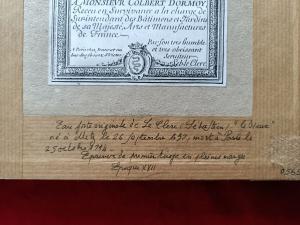 A MONSIEUR COLBERT DORMOY,
Receu en Survivance a la charge de
Surintendant des Bâtiments et Jardins
de sa Majesté, Arts et Manufactures
de France.
Par son tres humble
et tres obeissant
serviteur
le Clerc
Eau forte originale de Le Clerc Sébastien,
né à Metz le 26 septembre 1637, mort à Paris le
25 octobre 1714
Epreuve de premier tirage en pleines marges
Epoque XVII